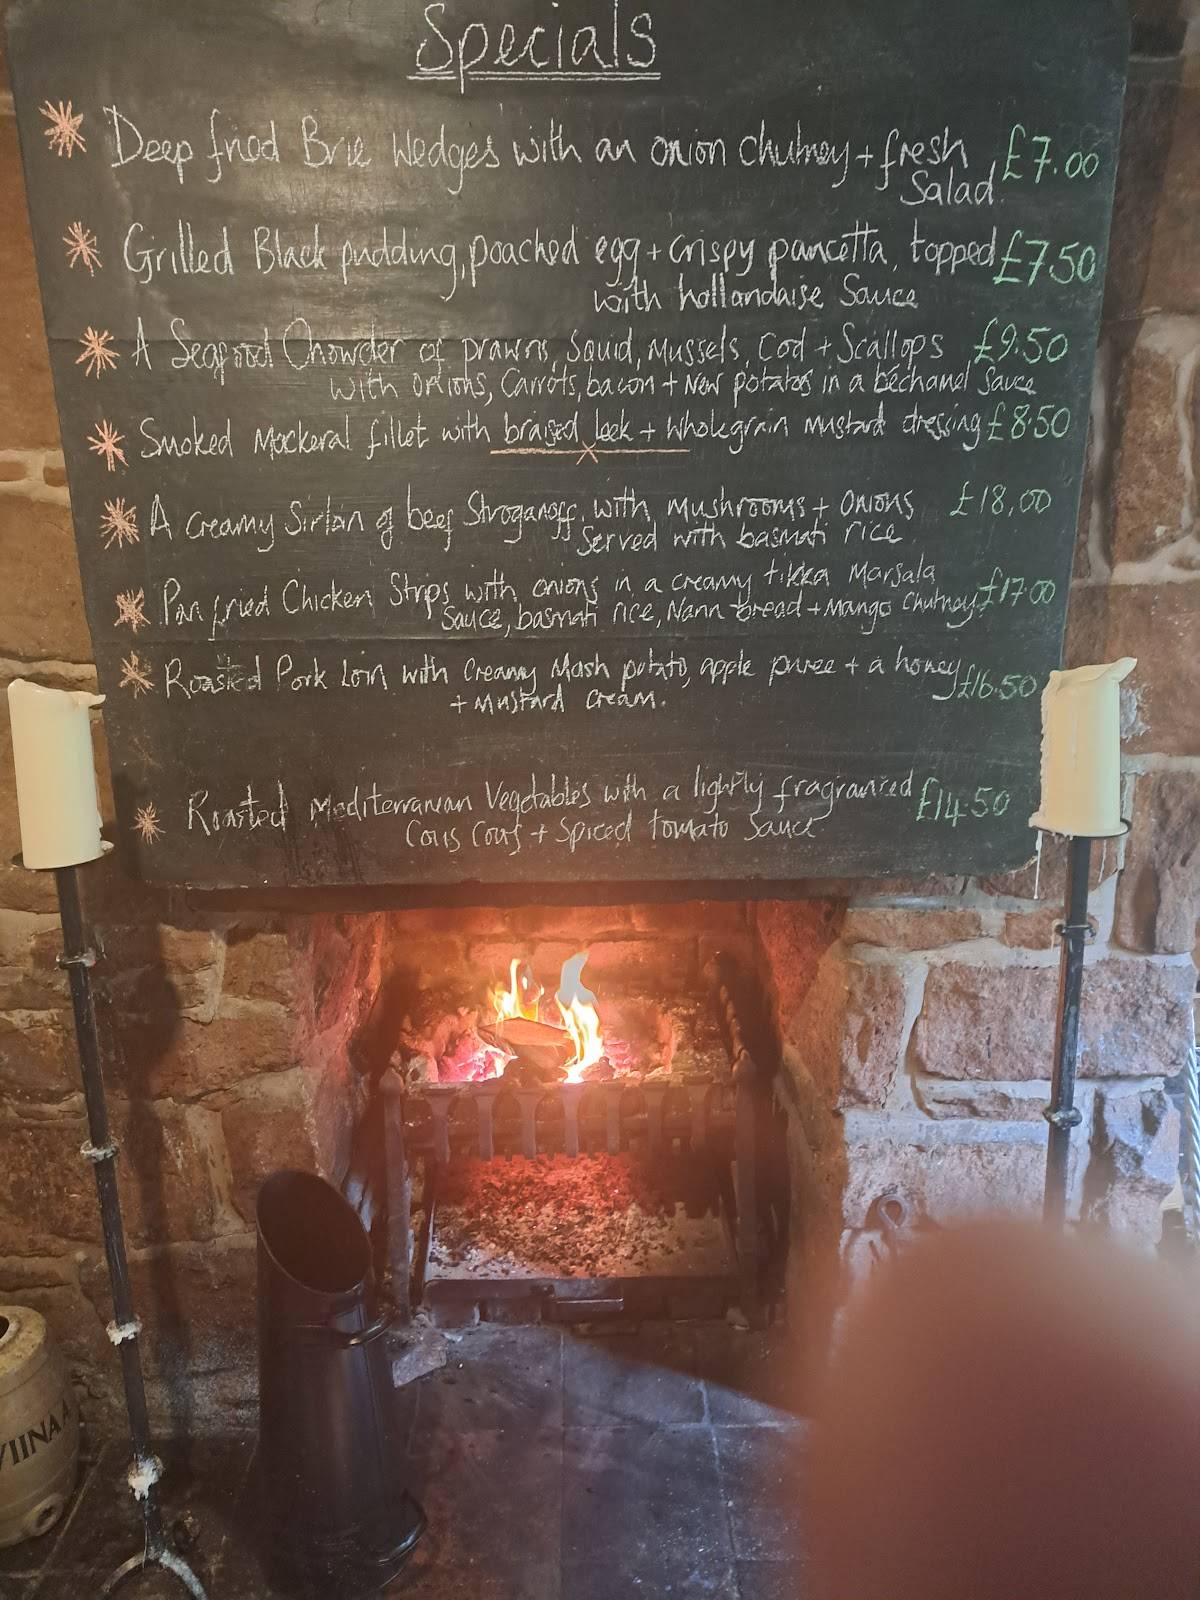 Specials
Deep fried Brie Wedges with an onion chutney + fresh £7.00
Salad
Grilled Black pudding, poached egg + crispy pancetta, topped £7.50
with hollandaise Sauce
A Seafood Chowder of prawns, Squid, Mussels, Cod + Scallops £9.50
with onions, Carrots, bacon + New potatos in a béchamel Sauce
Smoked Mackeral fillet with braised leek + Wholegrain Mustard dressing £8.50
A Creamy Sirloin of beef Stroganoff, with Mushrooms + Onions £18,00
Served with basmati rice
Pan fried Chicken Strips with onions in a creamy tikka Marsala £17.00
Sauce, basmati rice, Nann bread + Mango Chutney
Roasted Pork Loin with Creamy Mash potato, apple puree + a honey £16.50
+ Mustard cream.
Roasted Mediterranean Vegetables with a lightly fragranced £14.50
Cous Cous + Spiced tomato Sauce